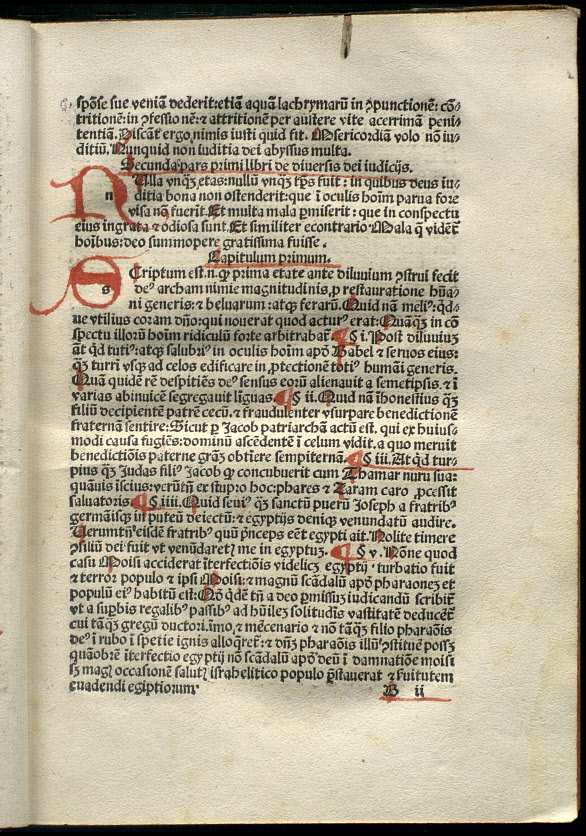 spōse sue veniā dederit: etiā aquā lachrymarū in ꝯpunctionē: cō⸗
tritionē: in ꝯfessionē: ⁊ attritionē per austere vite acerrimā peni⸗
tentiā. Discāt ergo, nimis iusti quid sit. Misericordiā volo nō iu⸗
ditiū. Nunquid non iuditia dei abyssus multa.
Secunda pars primi libri de diversis dei iudicijs.
n Ulla vnqꝫ etas: nullū vnqꝫ tp̄s fuit: in quibus deus iu⸗
ditia bona non ostenderit: que ī oculis hoīm parua fore
visa nō fuerīt. Et multa mala ꝑmiserit: que in conspectu
eius ingrata ⁊ odiosa sunt. Et similiter econtrario Mala q̄ vidēt᷑
hoībus: deo summopere gratissima fuisse.
Capitulum primum.
s Criptum est. n. ꝙ prima etate ante diluvium ꝯstrui fecit
de⁹ archam nimie magnitudinis, ꝓ restauratione hūa⸗
ni generis: ⁊ beluarum: atqꝫ ferarū. Quid nā meli⁹: qd⸗
ue vtilius coram dn̄o: qui nouerat quod actur⁹ erat: Quāqꝫ in cō
spectu illorū hoīm ridiculū forte arbitrabat᷑ ¶ § i. Post diluuiuꝫ
aūt qd tuti⁹: atqꝫ salubri⁹ in oculis hoīm apd̄ Babel ⁊ seruos eius:
qꝫ turri vsqꝫ ad celos edificare in ꝓtectionē toti⁹ humāi generis.
Quā quidē rē despitiēs de⁹ sensus eorū alienauit a semetipsis. ⁊ ī
varias abinuicē segregauit liguas. ¶ § ii. Quid nā īhonestius qꝫ
filiū decipientē patrē cecū. ⁊ fraudulenter vsurpare benedictionē
fraternā sentire: Sicut ꝑ Jacob patriarchā actū est. qui ex huius⸗
modi causa fugiēs: dominū ascēdentē ī celum vidit. a quo meruit
benedictiōis paterne grāꝫ obtīere sempiternā. ¶ § iii. At qd tur⸗
pius qꝫ Judas fili⁹ Jacob ꝙ concubuerit cum Thamar nuru sua:
quāuis īscius: verūtn̄ ex stupro hoc: phares ⁊ Zaram caro ꝓcessit
saluatoris. ¶ § iiii. Quid seui⁹ qꝫ sanctū puerū Joseph a fratrib⁹
germāisqꝫ in puteū deiectū: ⁊ egyptijs deniqꝫ venundatū audire.
Uerumtn̄ eisdē fratrib⁹ quū pn̄ceps eēt egypti ait. Nolite timere
ꝯsiliū dei fuit vt venūdaret᷑ me in egyptuꝫ. ¶ § v. Nōne quod
casu Moisi acciderat īterfectiōis videlicꝫ egyptij: turbatio fuit
⁊ terror populo ⁊ ipsi Moisi: ⁊ magnū scādalū apd̄ pharaonez et
populū ei⁹ habitū est: Nō qdē tn̄ a deo ꝑmissuꝫ iudicandū scribit᷑
vt a suꝑbis regalib⁹ passib⁹ ad hūiles solitudīs vastitatē deducēt᷑
cui tāqꝫ gregū ductori. īmo, ⁊ mēcenario ⁊ nō tāqꝫ filio pharaōis
de⁹ ī rubo ī spetie ignis alloq̄ret᷑: ⁊ dn̄ꝫ pharaōis illū ꝯstituē possꝫ
quāobrē īterfectio egyptij nō scādalū apd̄ deū ī damnatiōe moisi
sꝫ mag᷑ occasionē salut᷑ israhelitico populo p̄stauerat ⁊ suitutem
euadendi egiptiorum.
B ii